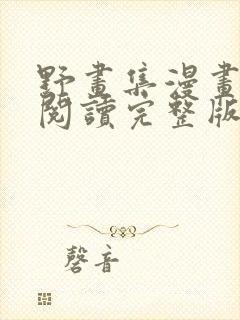 野畫集漫畫
閱讀完整版
磬音